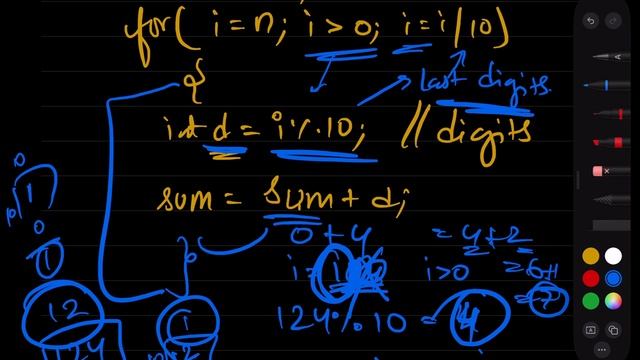 for( i = n; i > 0; i = i/10)
{
last digits.
int d = i % 10; // digits
sum = sum + d;
0 + 4 = 4 + 2
i = 1 i > 0 = 6+1
= 7
124 % 10 = 4
10
10 1
0
1
12 1
124